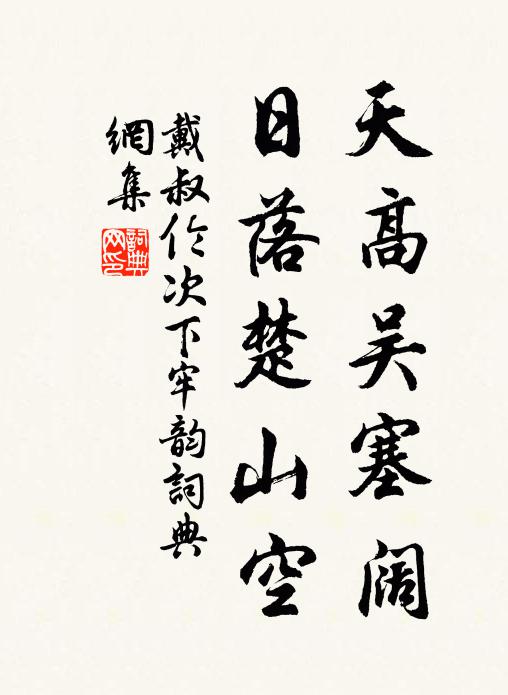 天高吴塞阔
日落楚山空
戴叔伦次下牢韵詞典
網集
詞典
网印